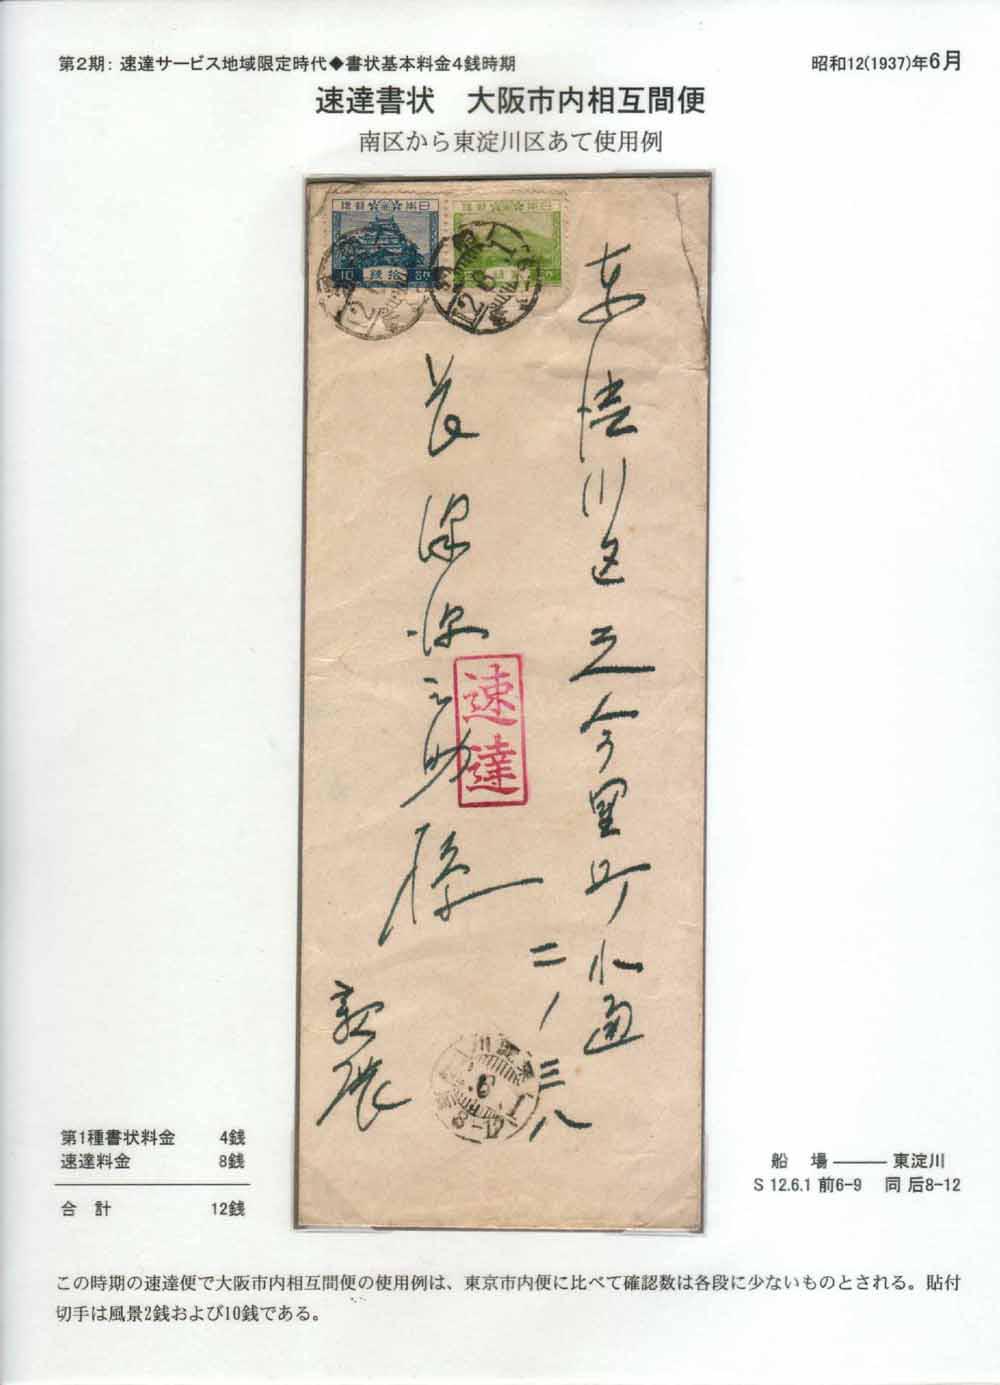 第2期：速達サービス地域限定時代◆書状基本料金4銭時期
昭和12(1937)年6月
速達書状　大阪市内相互間便
南区から東淀川区あて使用例
日本郵便
10 銭拾
日本郵便
12 6 1
東淀川区
元今里町
北通
二ノ三八
様
親展
速達
8-12
第1種書状料金　4銭
速達料金　8銭
合 計　12銭
船 場 ――― 東淀川
S 12.6.1 前6-9　同 后8-12
この時期の速達便で大阪市内相互間便の使用例は、東京市内便に比べて確認数は各段に少ないものとされる。貼付
切手は風景2銭および10銭である。